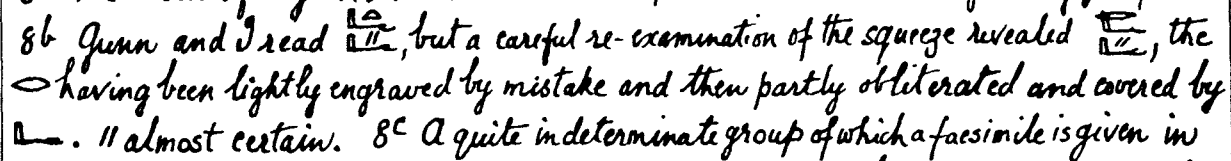 8b Gunn and I read , but a careful re-examination of the squeeze revealed , the
𓂋 having been lightly engraved by mistake and then partly obliterated and covered by
𓂝. \\ almost certain. 8c A quite indeterminate group of which a facsimile is given in